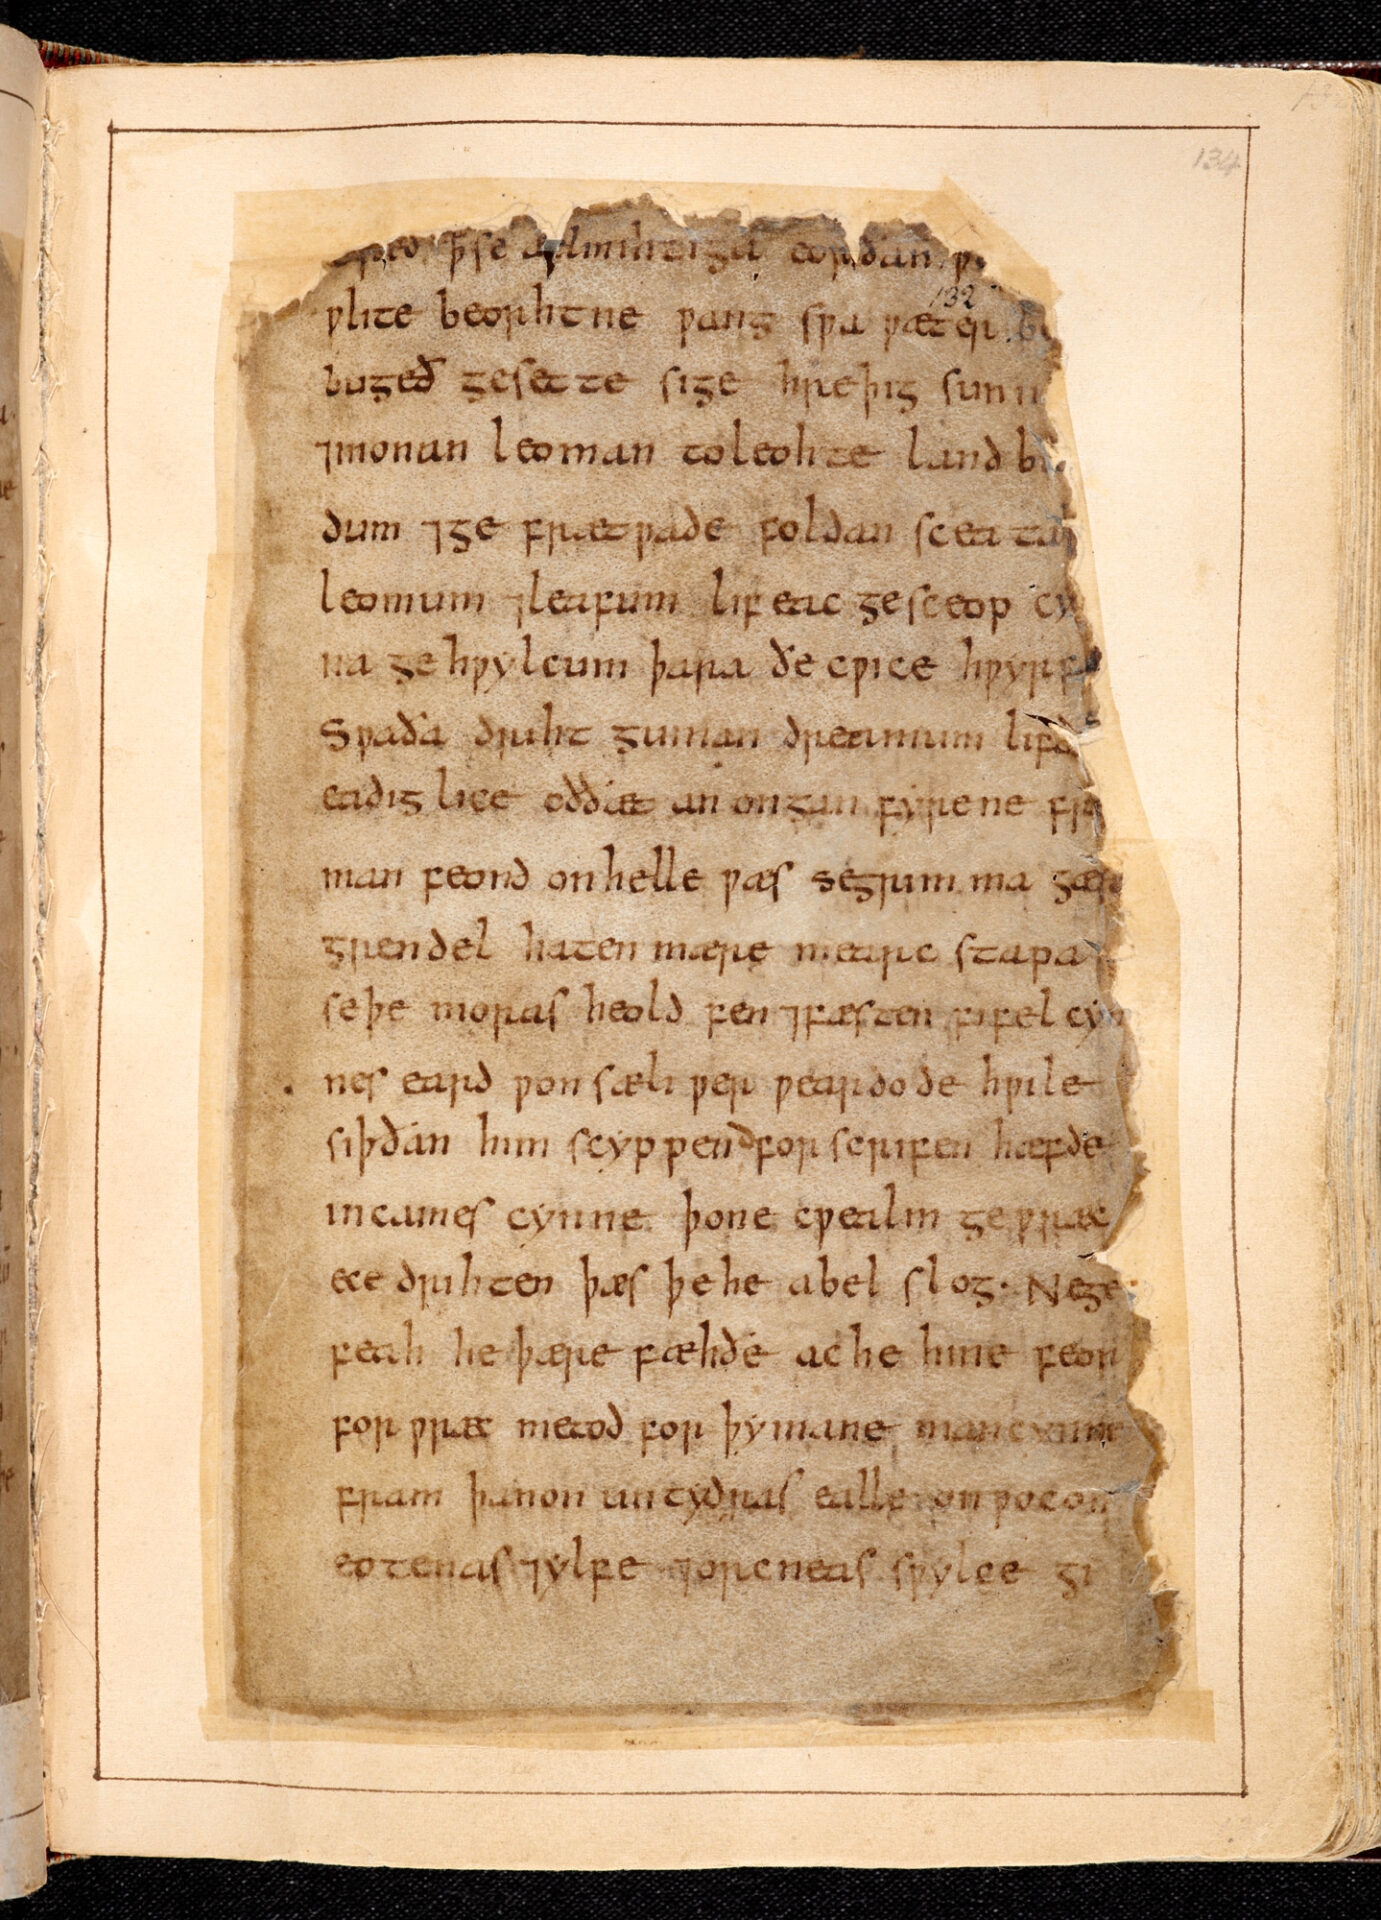 134
132
cƿeð þ̅ se ælmihtiga eorðan
ƿlite beorhtne ƿang sƿa ƿæter
bugeð gesette sige hreþig sunn
⁊monan leoman toleohte land
dum ⁊ge frætƿade foldan sceatum
leomum ⁊leafum lif eac gesceop cy
na ge hƿylcum þara ðe cƿice hƿyrf
Sƿaða driht guman dreamum lifd
eadig lice oððæt an ongan fyrene fre
man feond onhelle ƿæs segrim ma gæs
grendel haten mære mearc stapa
seþe moras heold fen ⁊fæsten fifel cyn
nes eard ƿon sæli ƿer ƿeardode hƿile
siþðan him scyppend for scrifen hæfde
incaines cynne þone cƿealm ge ƿræc
ece drihten þæs þe he abel slog· Nege
feah he þære fæhðe ac he hine feor
for ƿræc metod for þy mane mancynne
fram þanon untydras ealle on ƿocon
eotenas ⁊ylfe ⁊orcneas sƿylce gi